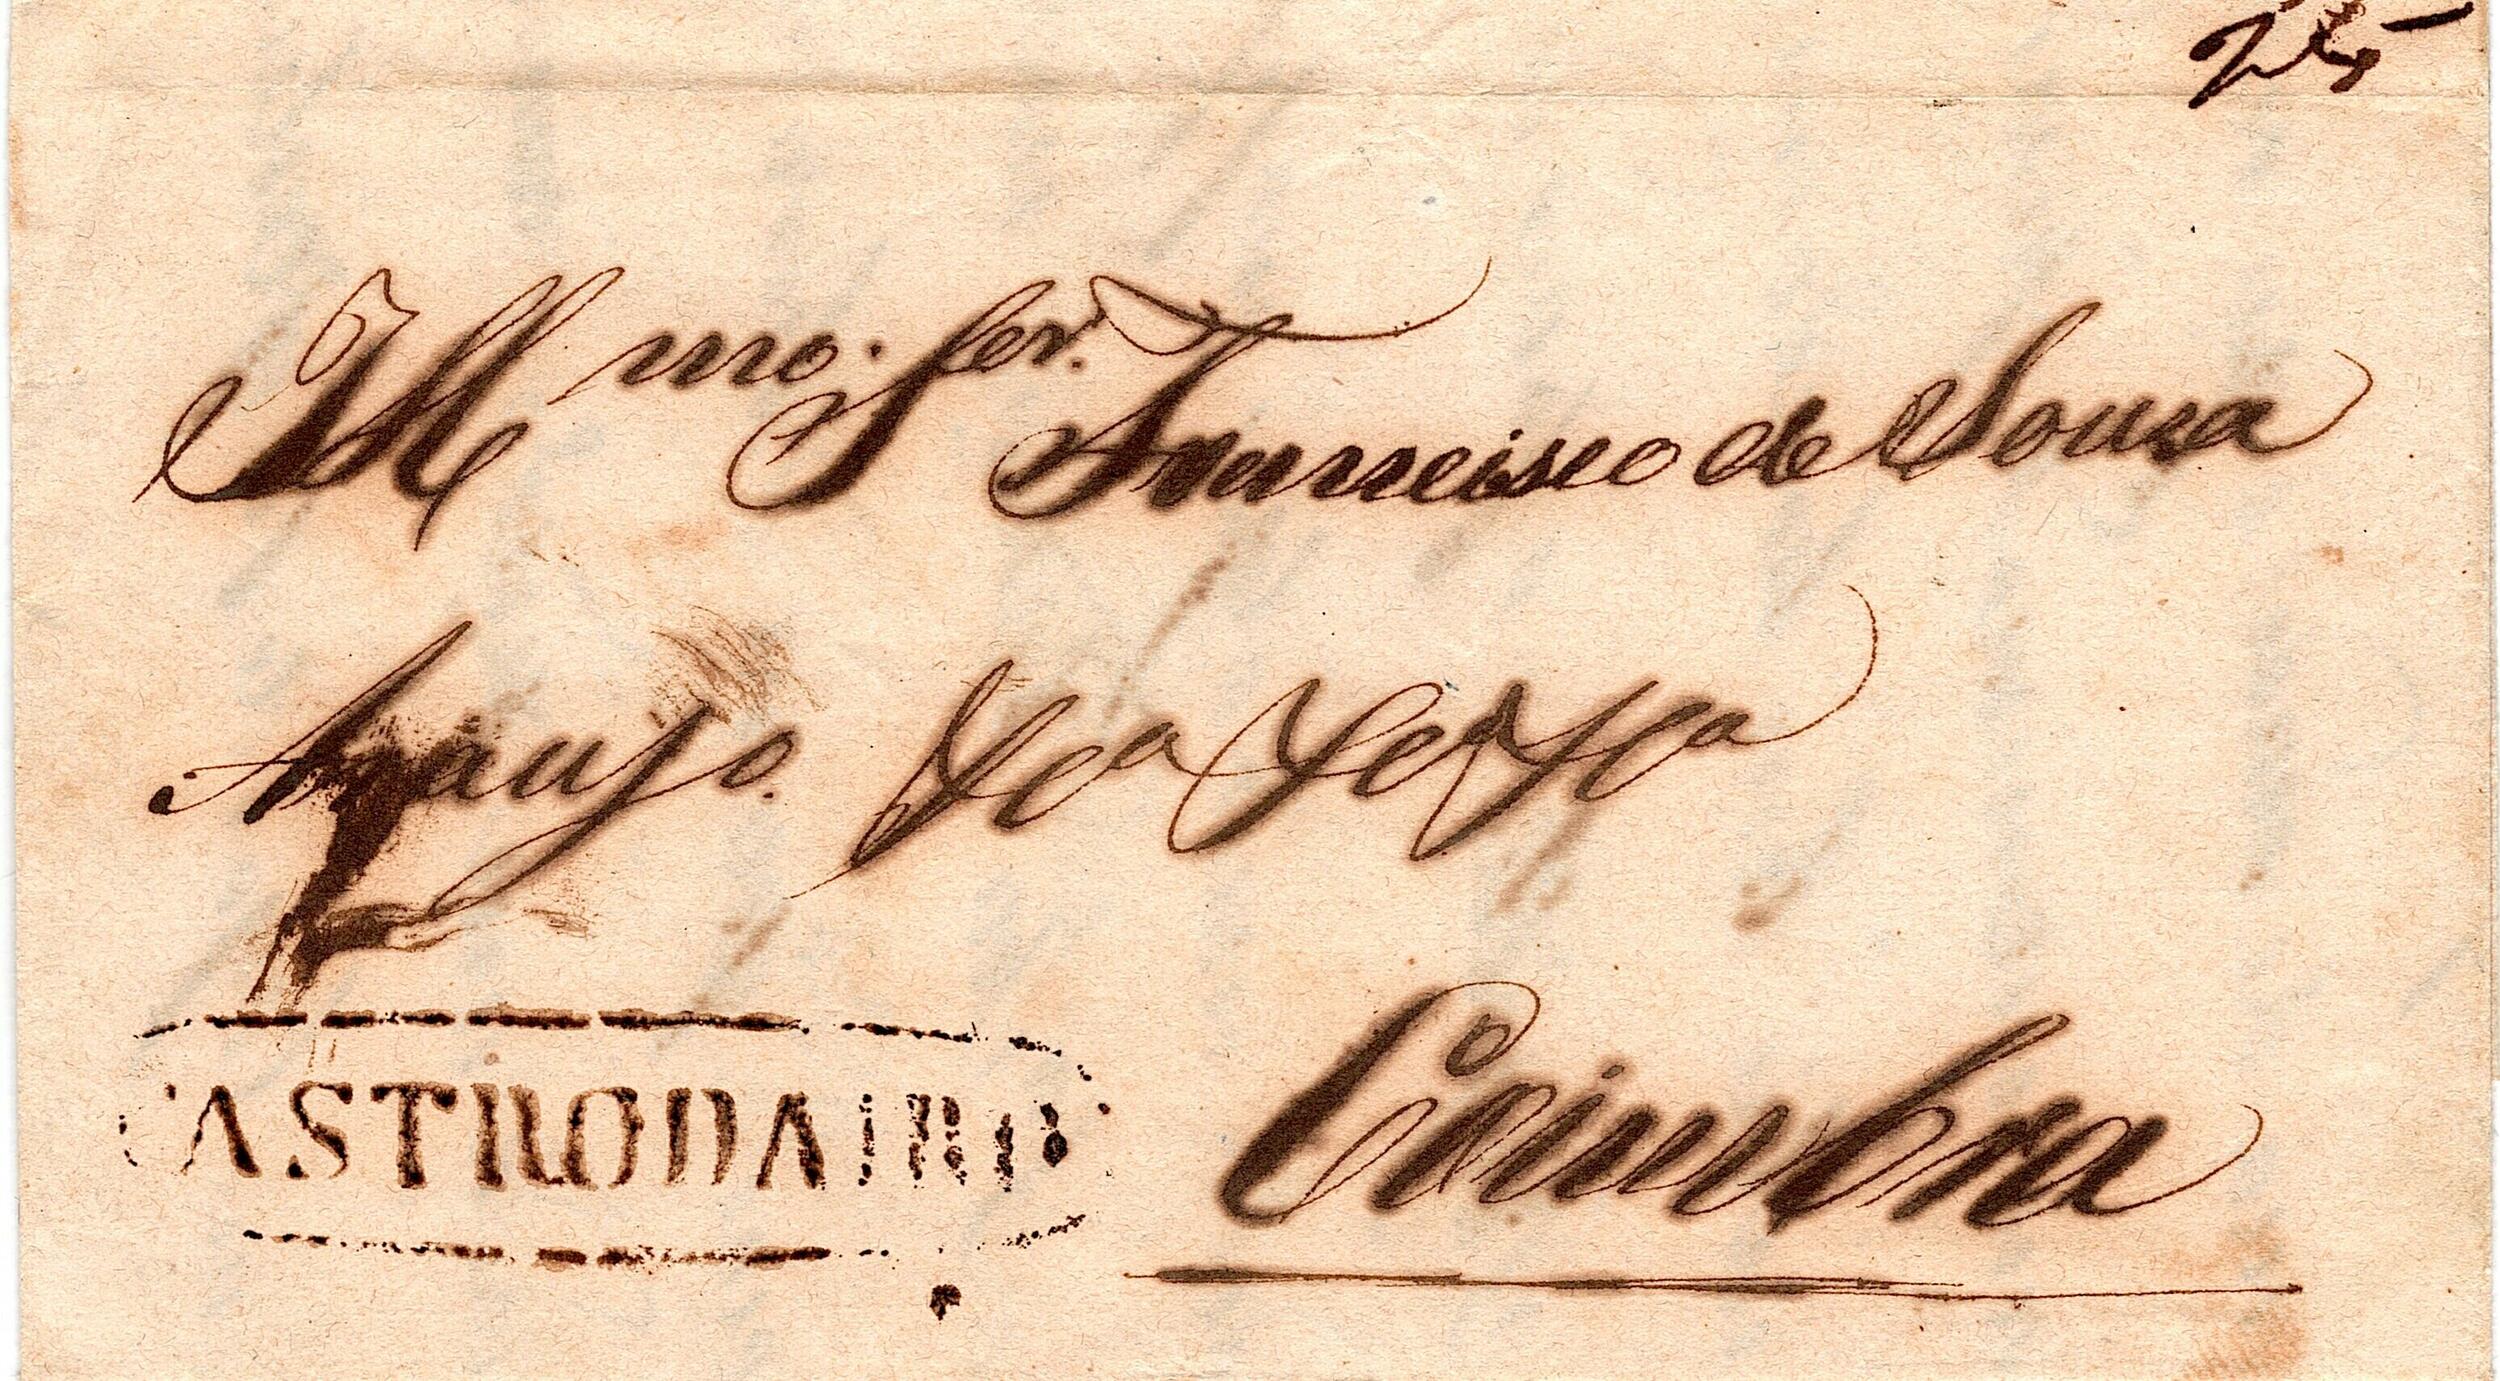 25
Illmo. Senr. Francisco de Sousa
Araujo.
Coimbra
CASTRODAIRO